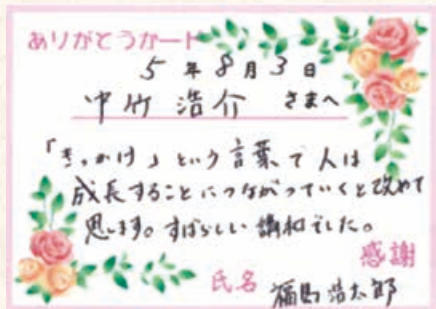 ありがとうカード
5年8月3日
中竹 浩介 さまへ
「きっかけ」という言葉で人は
成長することにつながっていくと改めて
思います。すばらしい講和でした。
感謝
氏名 福島 浩太郎